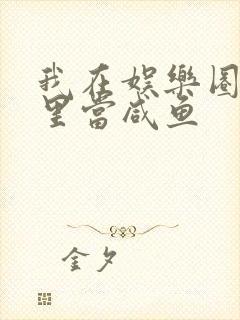 我在娱樂圈
里當咸鱼
金夕